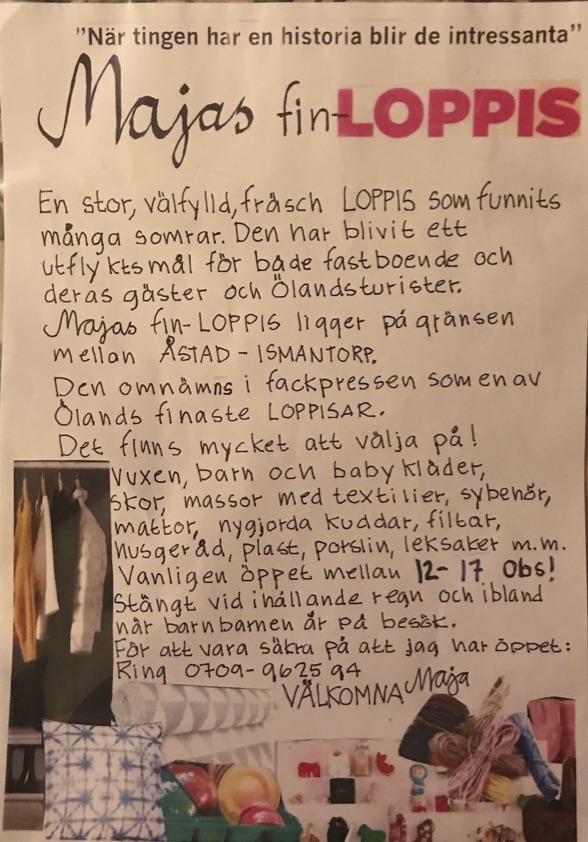 "När tingen har en historia blir de intressanta"
Majas fin-LOPPIS
En stor, välfylld, fräsch LOPPIS som funnits
många somrar. Den har blivit ett
utflyktsmål för både fastboende och
deras gäster och Ölandsturister.
Majas fin-LOPPIS ligger på gränsen
mellan ÅSTAD - ISMANTORP.
Den omnämns i fackpressen som en av
Ölands finaste LOPPISAR.
Det finns mycket att välja på!
Vuxen, barn och baby kläder,
skor, massor med textilier, sybehör,
mattor, nygjorda kuddar, filtar,
husgeråd, plast, porslin, leksaker m.m.
Vanligen öppet mellan 12-17 Obs!
Stängt vid ihållande regn och ibland
när barnbarnen är på besök.
För att vara säkra på att jag har öppet:
Ring 0709-962594
VÄLKOMNA Maja